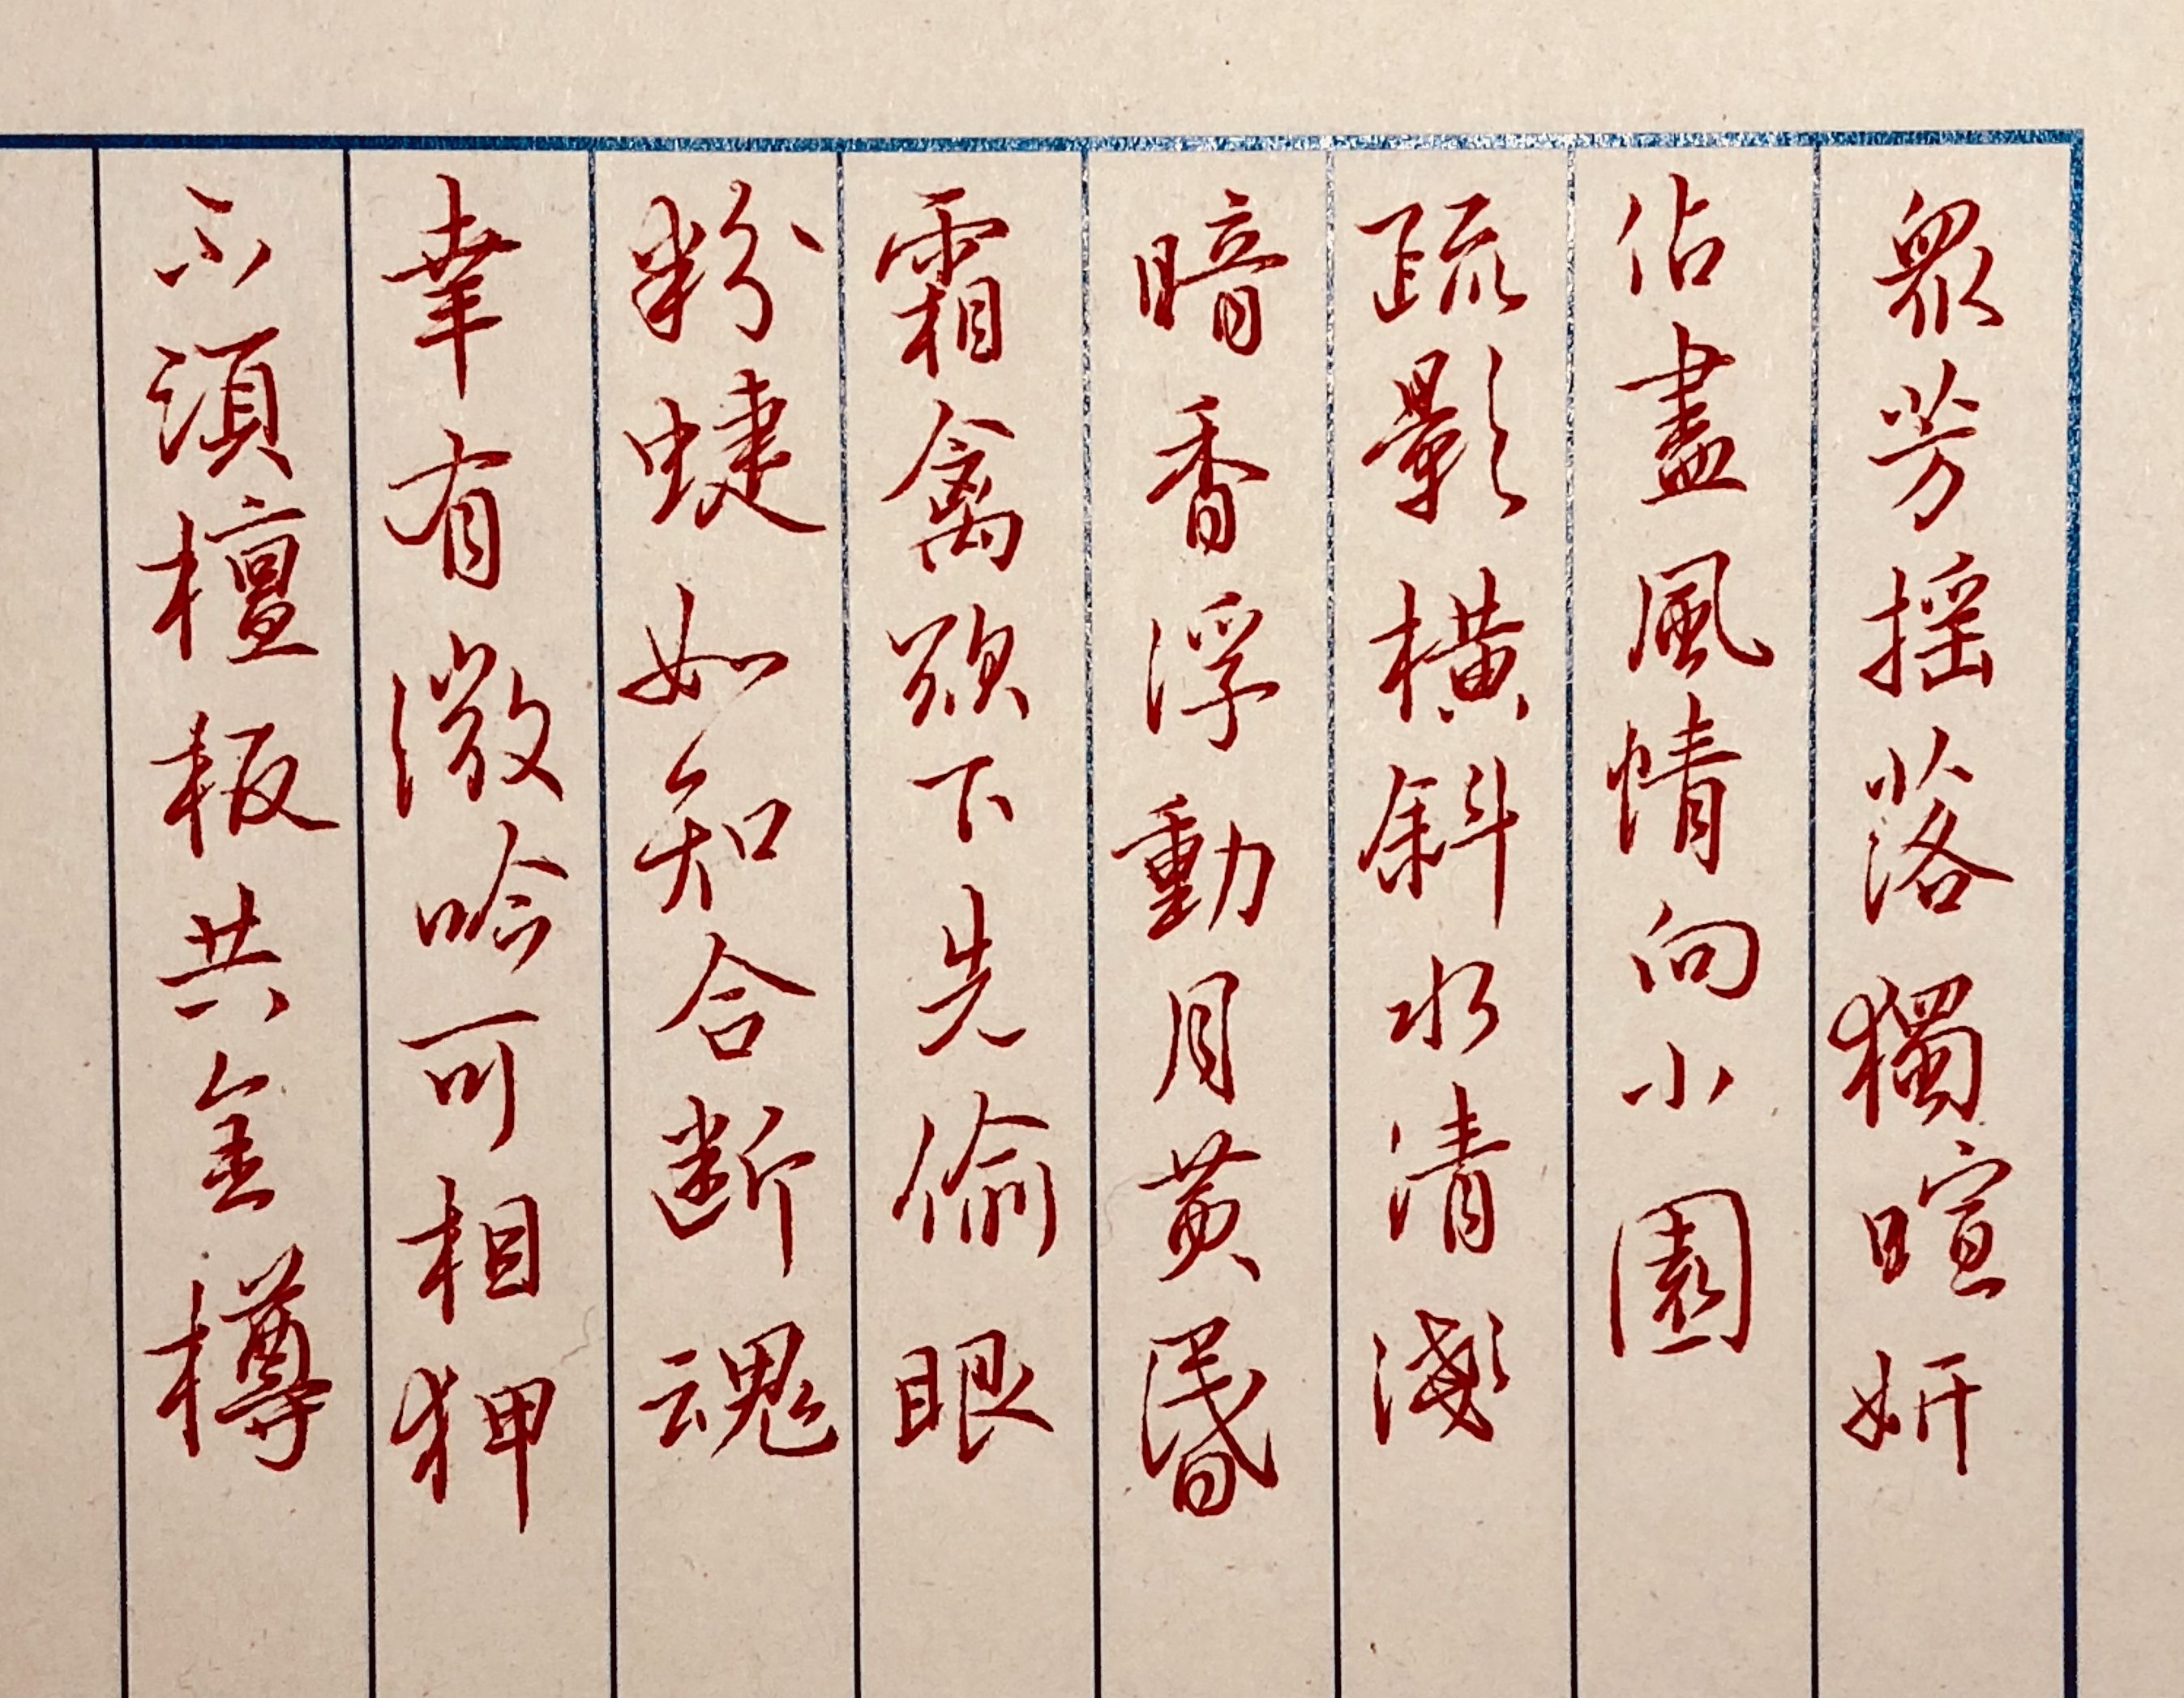 眾芳搖落獨暄妍
佔盡風情向小園
疏影橫斜水清淺
暗香浮動月黃昬
霜禽欲下先偷眼
粉蜨如知合断魂
幸有微吟可相狎
不須檀板共金樽